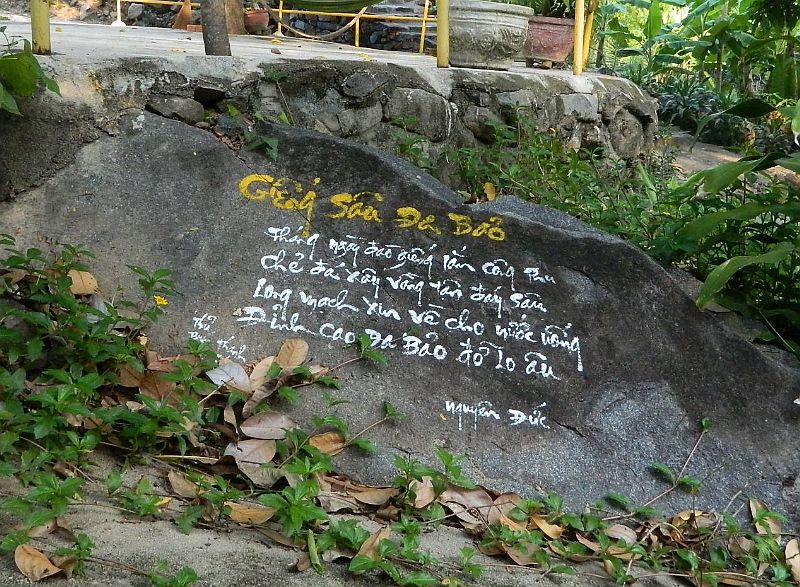 Giếng Sâu Đa Bảo
Tháng ngày đào giếng lắm công phu
Chẻ đá xây vòng tận đáy sâu
Long mạch xin về cho nước uống
Đỉnh cao Đa Bảo đỡ lo âu
Thủ
Thịnh
Nguyên Đức